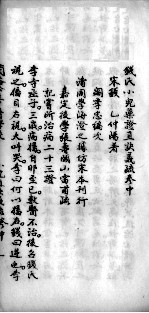 錢氏小兒藥證直訣義疏卷中
宋錢 乙仲陽著
閻李忠編次
清周學海澄之據仿宋本刊行
嘉定後學張壽頤山雷甫疏
記嘗所治病二十三證
李寺丞子三歲病搐自卯至巳數醫不治後召錢氏
視之搐目右視大叫哭李曰何以搐右錢曰逆也李